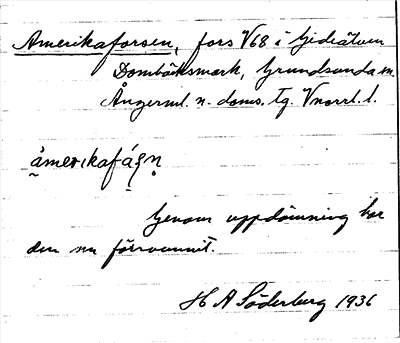 Amerikaforsen, fors V68 i Gideälven
Dombäcksmark, Grundsunda sn.
Ångerml. n. doms. tg. Vnorrl. l.
amerikafáʂn̥
Genom uppdämning har
den nu försvunnit.
H A Söderberg 1936